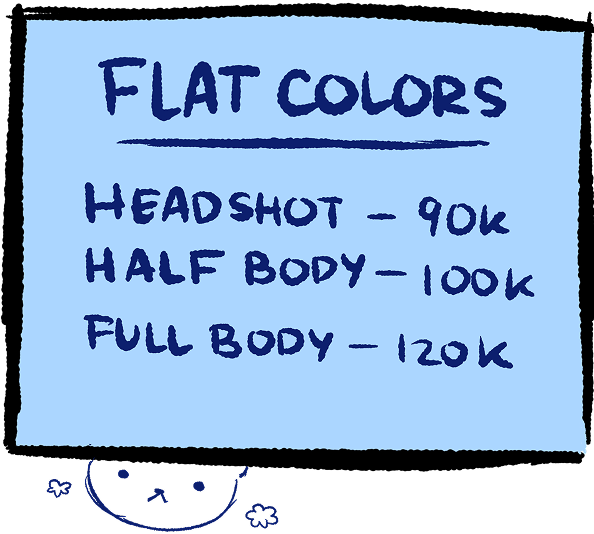 FLAT COLORS
HEADSHOT - 90K
HALF BODY - 100K
FULL BODY - 120K